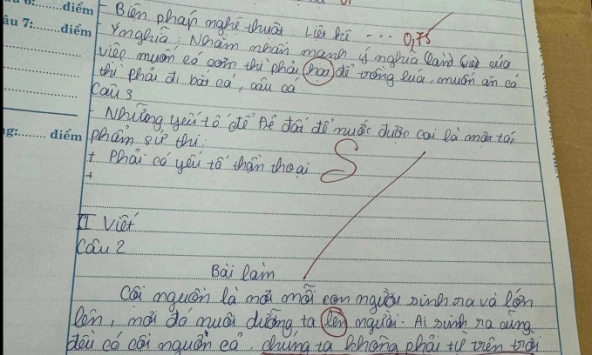 điểm - Biện pháp nghệ thuật Liệt kê ... 0,75
âu 7:......điểm - Ý nghĩa: Nhằm nhấn mạnh ý nghĩa của
việc muốn có cơm thì phải để trồng lúa, muốn ăn cá
thì phải đi bắt cá, câu cá
Câu 3
Những yếu tố để Đẻ đất đẻ nước được coi là một tác
ng:...... điểm phẩm sử thi:
+ Phải có yếu tố thần thoại S
+
II Viết
Câu 2
Bài làm
Cội nguồn là nơi mỗi con người sinh ra và lớn
lên, nơi đó nuôi dưỡng ta lên người. Ai sinh ra cũng
đều có cội nguồn cả, chúng ta không phải từ trên trời